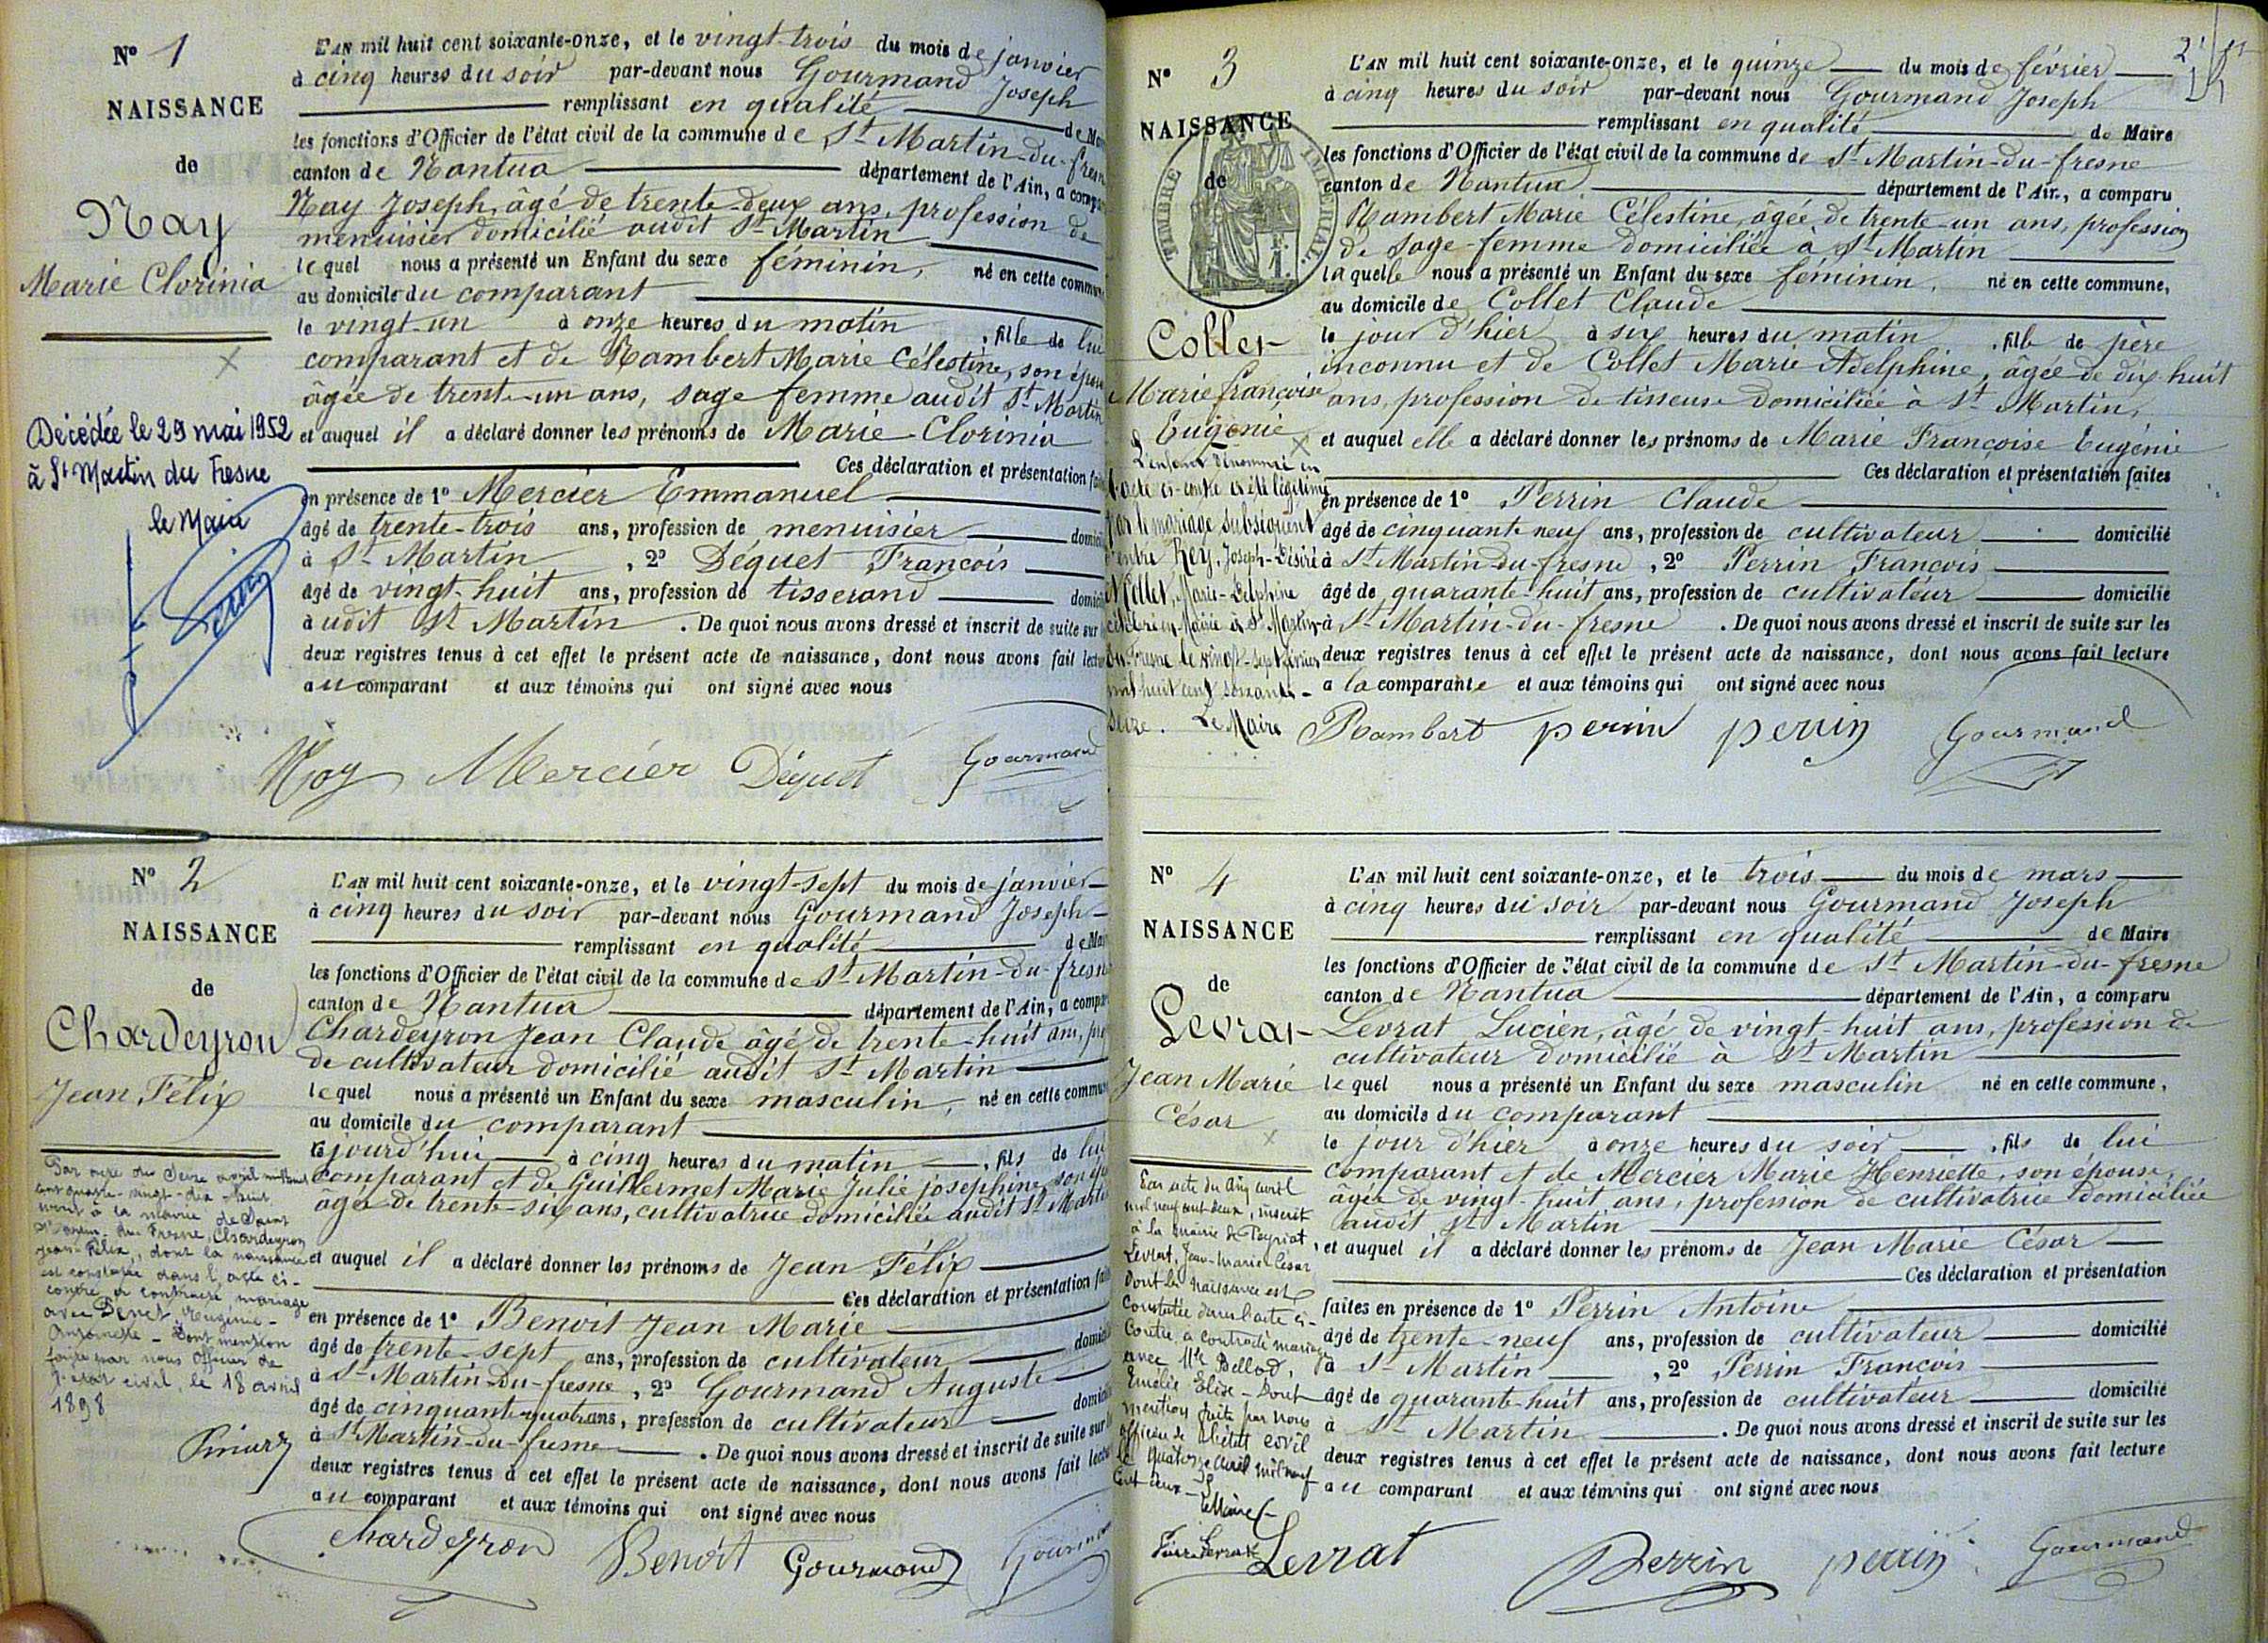 N° 1
NAISSANCE
de
Nay
Marie Clorinia
Décédée le 29 mai 1952
à St Martin du Fresne
le Maire
L'AN mil huit cent soixante-onze, et le vingt-trois du mois de janvier
à cinq heures du soir par-devant nous Gourmand Joseph
remplissant en qualité de Ma
les fonctions d'Officier de l'état civil de la commune de St Martin-du-fresn
canton de Nantua département de l'Ain, a compa
Nay Joseph, âgé de trente-deux ans, profession de
menuisier domicilié audit St Martin
lequel nous a présenté un Enfant du sexe féminin, né en cette commune
au domicile du comparant
le vingt-un à onze heures du matin, fille de lui
comparant et de Rambert Marie Célestine, son épouse
âgée de trente-un ans, sage femme audit St Martin
et auquel il a déclaré donner les prénoms de Marie-Clorinia
Ces déclaration et présentation fait
en présence de 1° Mercier Emmanuel
âgé de trente-trois ans, profession de menuisier domicil
à St Martin, 2° Déquet François
âgé de vingt-huit ans, profession de tisserand domicil
audit St Martin. De quoi nous avons dressé et inscrit de suite sur
deux registres tenus à cet effet le présent acte de naissance, dont nous avons fait lectur
au comparant et aux témoins qui ont signé avec nous
Nay Mercier Déquet Gourmand
N° 2
NAISSANCE
de
Chardeyron
Jean Félix
Par acte du seize avril mil huit
cent quatre-vingt-dix-huit
inscrit à la mairie de Saint
Martin-du-Fresne, Chardeyron
Jean-Félix, dont la naissance
est constatée dans l'acte ci-
contre a contracté mariage
avec Eugénie-
Dont mention
faite par nous Officier de
l'état civil, le 18 avril
1898
L'AN mil huit cent soixante-onze, et le vingt-sept du mois de janvier
à cinq heures du soir par-devant nous Gourmand Joseph
remplissant en qualité de Mai
les fonctions d'Officier de l'état civil de la commune de St Martin-du-fresne
canton de Nantua département de l'Ain, a compar
Chardeyron Jean Claude âgé de trente-huit ans, pro
de cultivateur domicilié audit St Martin
lequel nous a présenté un Enfant du sexe masculin, né en cette commun
au domicile du comparant
le jourd'hui à cinq heures du matin, fils de lui
comparant et de Guillermet Marie Julie joséphine, son ép
âgée de trente-six ans, cultivatrice domiciliée audit St Martin
et auquel il a déclaré donner les prénoms de Jean Félix
Ces déclaration et présentation fait
en présence de 1° Benoit Jean Marie
âgé de trente-sept ans, profession de cultivateur domicil
à St Martin-du-fresne, 2° Gourmand Auguste
âgé de cinquante-quatre ans, profession de cultivateur domicil
à St Martin-du-fresne. De quoi nous avons dressé et inscrit de suite sur l
deux registres tenus à cet effet le présent acte de naissance, dont nous avons fait lectur
au comparant et aux témoins qui ont signé avec nous
Chardeyron Benoit Gourmand Gourmand
N° 3
NAISSANCE
de
TIMBRE IMPERIAL
Collet
Marie françoise
Eugénie
L'enfant dénommé en
l'acte ci-contre a été légitimé
par le mariage subséquent
entre Rey, Joseph-Désiré
et Collet, Marie-Delphine
célébré en Mairie de St Martin-
du-Fresne le vingt-sept février
mil huit cent soixante-
seize. Le Maire
L'AN mil huit cent soixante-onze, et le quinze du mois de février
à cinq heures du soir par-devant nous Gourmand Joseph
remplissant en qualité de Maire
les fonctions d'Officier de l'état civil de la commune de St Martin-du-fresne
canton de Nantua département de l'Ain, a comparu
Rambert Marie Célestine, âgée de trente-un ans, profession
de sage-femme domiciliée à St Martin
laquelle nous a présenté un Enfant du sexe féminin, né en cette commune,
au domicile de Collet Claude
le jour d'hier à six heures du matin, fille de père
inconnu et de Collet Marie Adelphine, âgée de dix huit
ans, profession de tisseuse domiciliée à St Martin,
et auquel elle a déclaré donner les prénoms de Marie Françoise Eugénie
Ces déclaration et présentation faites
en présence de 1° Perrin Claude
âgé de cinquante neuf ans, profession de cultivateur domicilié
à St Martin-du-fresne, 2° Perrin François
âgé de quarante-huit ans, profession de cultivateur domicilié
à St Martin-du-fresne. De quoi nous avons dressé et inscrit de suite sur les
deux registres tenus à cet effet le présent acte de naissance, dont nous avons fait lecture
a la comparante et aux témoins qui ont signé avec nous
Rambert perrin perrin Gourmand
N° 4
NAISSANCE
de
Levrat
Jean Marie
César
Par acte du cinq avril
mil neuf cent deux, inscrit
à la mairie de Peyriat,
Levrat, Jean-Marie César
dont la naissance est
constatée dans l'acte ci-
contre, a contracté mariage
avec Mlle Bellod,
Emélie Elise - Dont
mention faite par nous
officier de l'état civil
le quatorze avril mil neuf
cent deux
Le Maire
L'AN mil huit cent soixante-onze, et le trois du mois de mars
à cinq heures du soir par-devant nous Gourmand Joseph
remplissant en qualité de Maire
les fonctions d'Officier de l'état civil de la commune de St Martin-du-fresne
canton de Nantua département de l'Ain, a comparu
Levrat Lucien, âgé de vingt-huit ans, profession de
cultivateur domicilié à St Martin
lequel nous a présenté un Enfant du sexe masculin né en cette commune,
au domicile du comparant
le jour d'hier à onze heures du soir, fils de lui
comparant et de Mercier Marie Henriette, son épouse,
âgée de vingt-huit ans, profession de cultivatrice domiciliée
audit St Martin
et auquel il a déclaré donner les prénoms de Jean Marie César
Ces déclaration et présentation
faites en présence de 1° Perrin Antoine
âgé de trente-neuf ans, profession de cultivateur domicilié
à St Martin, 2° Perrin François
âgé de quarante-huit ans, profession de cultivateur domicilié
à St Martin. De quoi nous avons dressé et inscrit de suite sur les
deux registres tenus à cet effet le présent acte de naissance, dont nous avons fait lecture
au comparant et aux témoins qui ont signé avec nous
Levrat Perrin perrin Gourmand